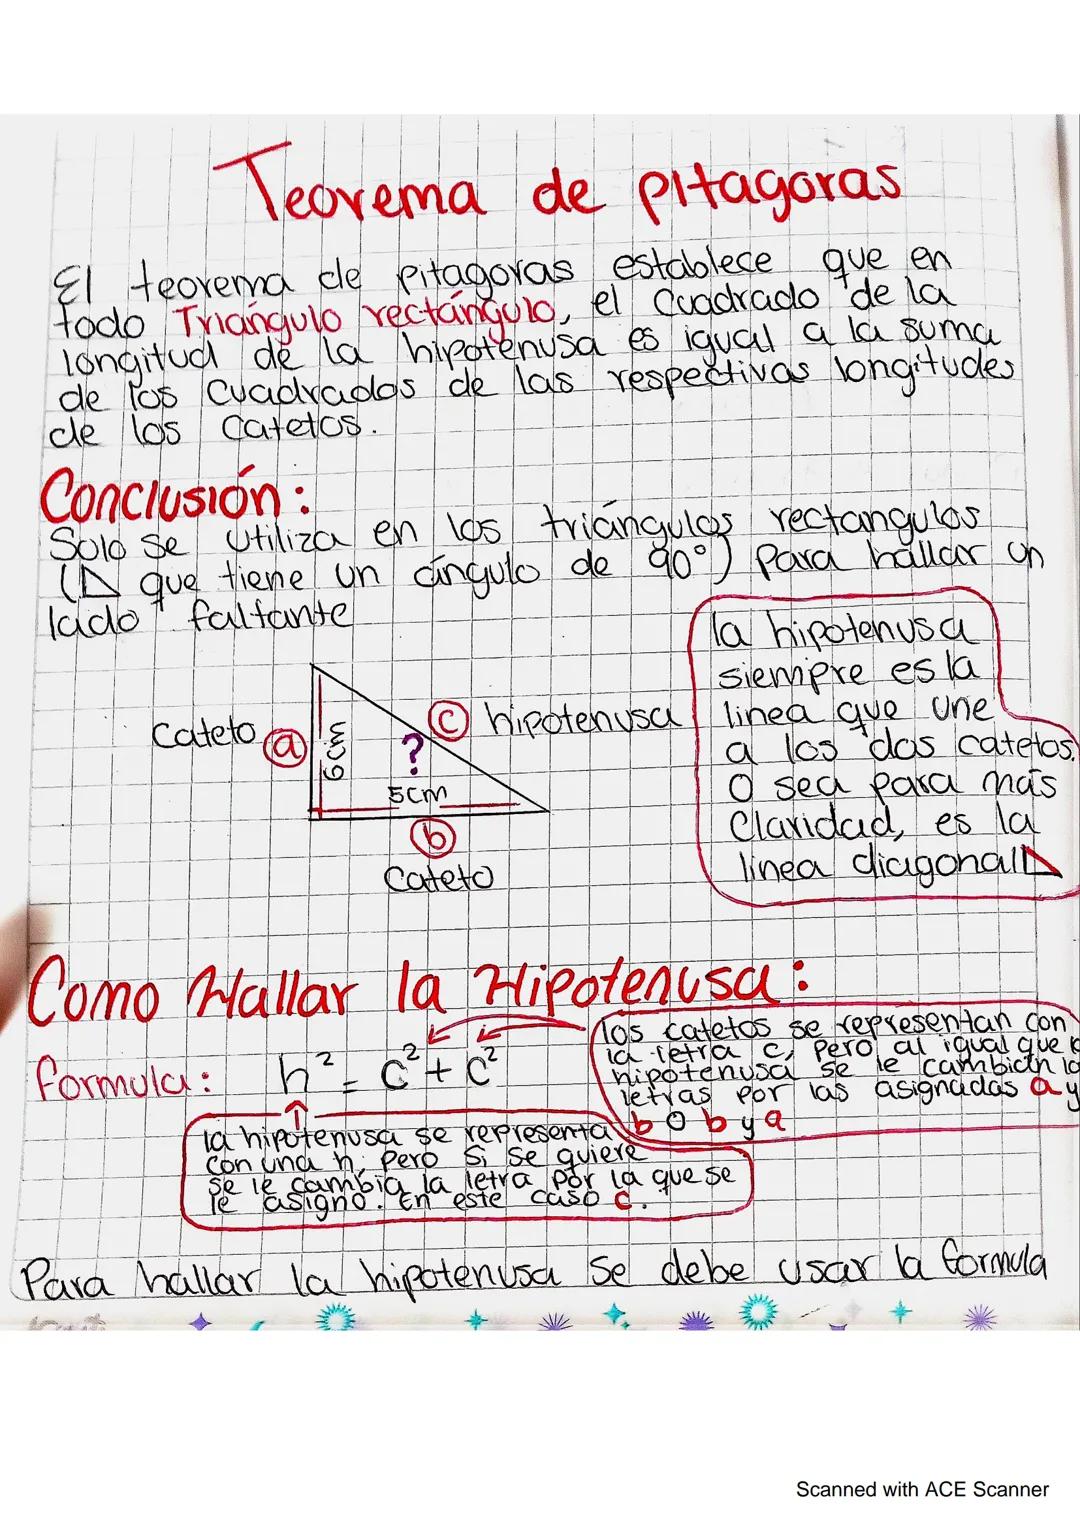 Teorema de pitagoras
El teorema de pitagoras establece que en
todo Triángulo rectángulo, el cuadrado de la
longitud de la hipotenusa es igual a la suma
de los cuadrados de las respectivas longitudes
de los catetos.
Conclusión:
Solo se utiliza en los triángulos rectangulos
( que tiene un ángulo de 90°) para hallar un
lado faltante
la hipotenusa
siempre es la
linea que une
a los dos catetos.
O sea para más
claridad, es la
linea diagonal
cateto a
6cm
?
c hipotenusa
5cm
b
cateto
Como Hallar la Hipotenusa:
formula: h² = c² + c²
los catetos se representan con
la letra c, pero al igual que
hipotenusa se le cambian
letras por las asignadas a y
b o b y a
la hipotenusa se representa
con una h, pero si se quiere
se le cambia la letra por la que se
le asigno. En este caso c.
Para hallar la hipotenusa se debe usar la formula
Scanned with ACE Scanner